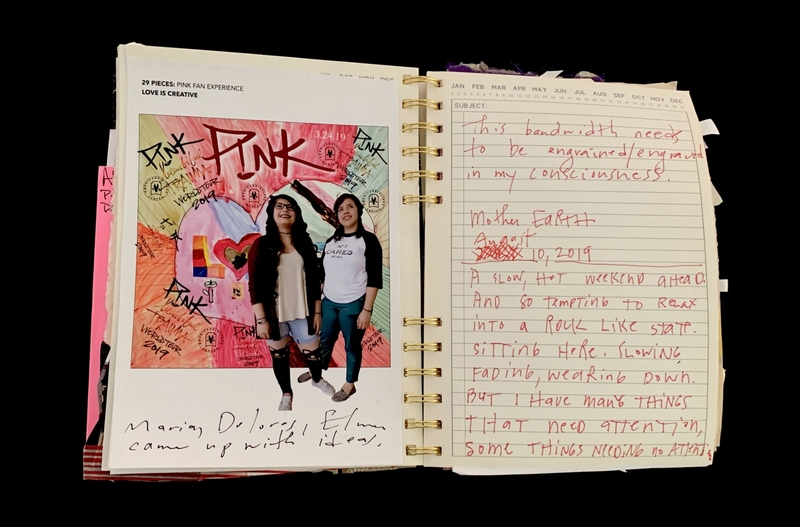 29 PIECES: PINK FAN EXPERIENCE
LOVE IS CREATIVE
P!NK
3.24.19
P!NK
WORLD TOUR
2019
P!NK
P!NK
WORLD TOUR
2019
P!NK
WORLD TOUR
2019
CARES
Maria, Dolores, Elmer
came up with ideas.
JAN FEB MAR APR MAY JUN JUL AUG SEP OCT NOV DEC
SUBJECT:
This bandwidth needs
to be engrained/engraved
in my consciousness.
Mother EARTH
August
10, 2019
A SLOW, HOT WEEKEND AHEAD.
AND SO TEMPTING TO RELAX
INTO A ROCK LIKE STATE.
SITTING HERE. SLOWING,
FADING, WEARING DOWN.
BUT I HAVE MANY THINGS
THAT NEED ATTENTION,
SOME THINGS NEEDING NO